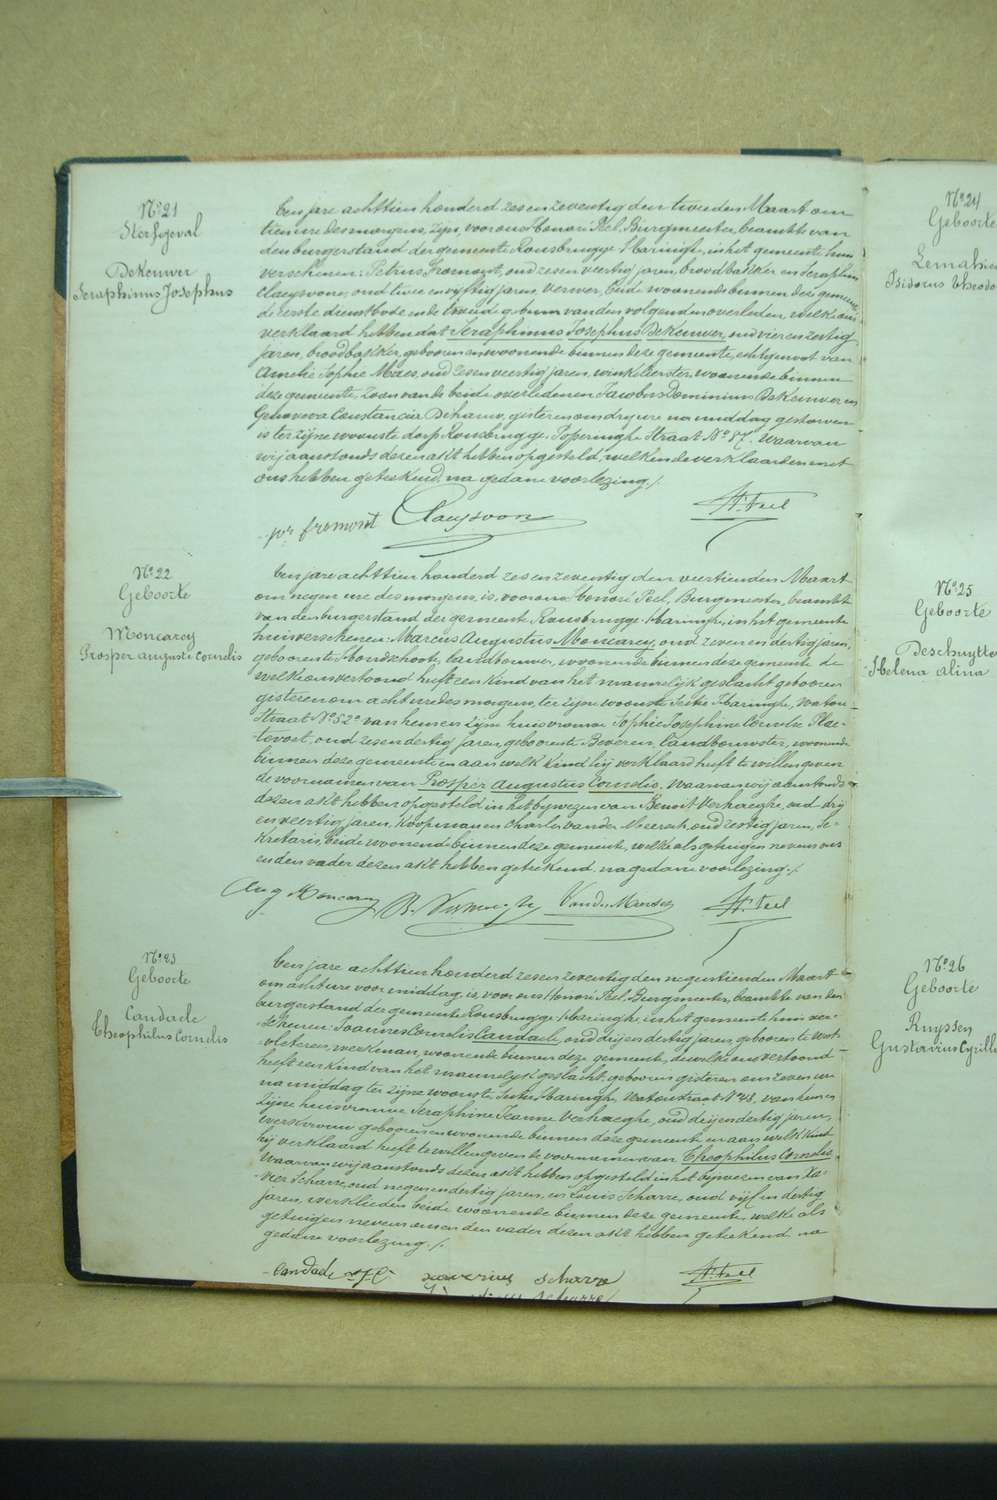 N° 21
Sterfgeval
DeKeuwer
Seraphinus Josephus
Een jare achttien honderd zes en zeventig den tweeden Maart om
tien ure des morgens, zijn, voor ons Honoré Peel, Burgmeester, beambte van
den burgerstand der gemeente Rousbrugge Haringhe, in het gemeente huis
verschenen: Petrus Fremont, oud zes en veertig jaren, broodbakker en Seraphin
Claeysoone, oud twee en vyftig jaren, verwer, beide woonende binnen deze gemeente,
de eerste dienstbode en de tweede gebuur van den volgenden overleden, welke ons
verklaard hebben dat Seraphinus Josephus DeKeuwer, oud vier en zestig
jaren, broodbakker, geboren en woonende binnen deze gemeente, echtgenoot van
Amelie Sophie Maes, oud zes en veertig jaren, winkelierster, woonende binnen
deze gemeente, zoon van de beide overledenen Jacobus Dominicus DeKeuwer en
Genoveva Constancia Dehaw, gisteren om dry ure na middag gestorven
is ter zijne woonste dorp Rousbrugge, Poperinghe Straat N° 87. Waarvan
wij aanstonds dezen akt hebben opgesteld, welken de verklaarders met
ons hebben geteekend, na gedane voorlezing./.
per fremont Claeysoon H. Peel
N° 22
Geboorte
Moncarey
Prosper Auguste Cornelis
Een jare achttien honderd zes en zeventig den veertienden Maart
om negen ure des morgens, is, voor ons Honoré Peel, Burgmeester, beambte
van den burgerstand der gemeente Rousbrugge-Haringhe, in het gemeente
huis verschenen: Marcus Augustus Moncarey, oud zeven en dertig jaren,
geboren te Hondschoote, landbouwer, woonende binnen deze gemeente de
welke ons vertoond heeft een kind van het mannelijk geslacht geboren
gisteren om acht ure des morgens, ter zijne woonste Sectie Haringhe, Watou-
Straat N° 52° van hem en zijne huisvrouw Sophie Josephine Amelie Plae-
tevoet, oud zes en dertig jaren, geboren te Beveren, landbouwster, woonende
binnen deze gemeente en aan welk kind hij verklaard heeft te willen geven
de voornamen van Prosper Augustus Cornelis, Waarvan wij aanstonds
dezen akt hebben opgesteld in het bywezen van Benoit Verhaeghe, oud drij
en veertig jaren, koopman en Charles Vander Meersch, oud zestig jaren, Se-
kretaris, beide woonende binnen deze gemeente, welke als getuigen nevens ons
en den vader dezen akt hebben geteekend, na gedane voorlezing./.
Aug Moncarey B. Verhaeghe VanderMeersch H. Peel
N° 23
Geboorte
Candaele
Theophilus Cornelis
Een jare achttien honderd zes en zeventig den negentienden Maart
om acht ure voor middag, is, voor ons Honoré Peel, Burgmeester, beambte van den
burgerstand der gemeente Rousbrugge-Haringhe, in het gemeente huis ver-
schenen: Joannes Cornelis Candaele, oud drij en dertig jaren, geboren te West-
vleteren, werkman, woonende binnen deze gemeente, de welke ons vertoond
heeft een kind van het mannelijk geslacht, geboren gisteren om zeven ure
na middag ter zijne woonste, Sectie Haringhe, Watoustraat N° 48, van hem en
zijne huisvrouw Seraphine Jeanne Verhaeghe, oud drij en dertig jaren,
werkvrouw, geboren en woonende binnen deze gemeente en aan welk kind
hij verklaard heeft te willen geven de voornamen van Theophilus Cornelis.
Waarvan wij aanstonds dezen akt hebben opgesteld in het bijwezen van Xa-
vier Scharre, oud negen en dertig jaren, en Louis Scharre, oud vijf en dertig
jaren, werklieden beide woonende binnen deze gemeente, welke als
getuigen nevens ons en den vader dezen akt hebben geteekend na
gedane voorlezing./.
Candaele xaverius scharre H. Peel
scharre
N° 24
Geboorte
Lemahieu
Isidorus Theodo
N° 25
Geboorte
Deschuytte
Helena Alina
N° 26
Geboorte
Ruyssen
Gustavius Cyrille